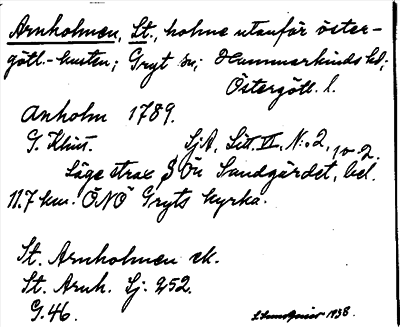 Arnholmen, St., holme utanför öster-
götl.-kusten; Gryt sn; Hammarkinds hd;
Östergötl. l.
Anholm 1789.
G. Klint. SjA, Litt. II, N:o 2, 
Läge strax S Ön Sandgärdet, bel.
11.7 km. ÖNÖ Gryts kyrka.
St. Arnholmen ek.
St. Arnh. Sj. 252.
G. 46. 1938.